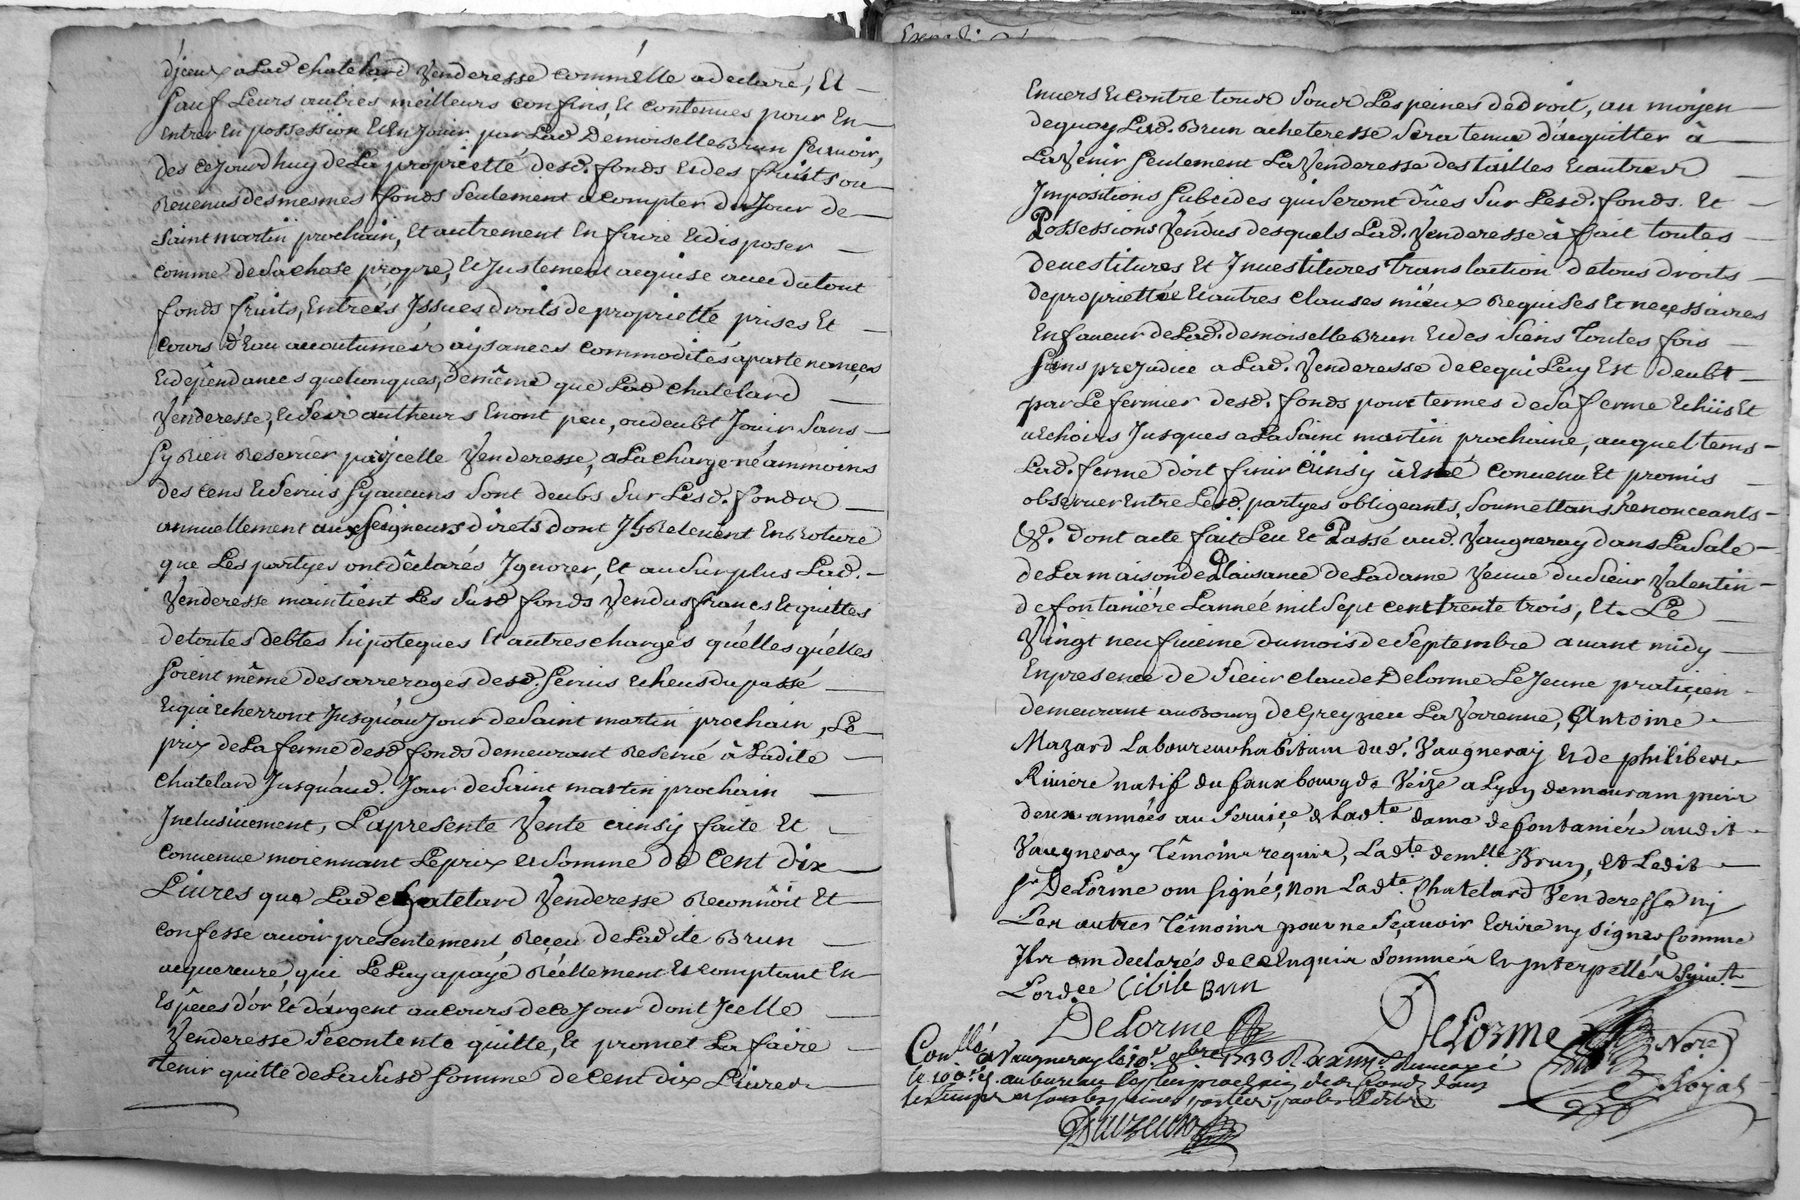 djceux a Lad Chatelard Venderesse comm'Elle a declaré, Et
Sauf Leurs autres meilleurs confins, Et contenues pour En
Entrer En possession Et En Jouir par Lad Demoiselle Brun Scavoir,
des Cejourdhuy de La proprietté desd. fonds Et des fruits ou
Revenus des mesmes fonds Seulement a compter du Jour de
Saint martin prochain, Et autrement En faire Et disposer
comme de Sa chose propre, Et Justement acquise avec du tout
fonds fruits, Entrées Jssues droits de proprietté prises Et
cours d'Eau accoutumés aysances commodités apartenances
Et dependances quelconques, de même que Lad Chatelard
Venderesse, Et Ses autheurs En ont peu, ou deubt Jouir Sans
Sy Rien Reserver par jcelle Venderesse, a La charge néammoins
des Cens Et Servis Sy aucuns Sont deubs Sur Lesd. fonds
annuellement aux Seigneurs directs dont Jls Relevent En Roture
que Les partyes ont déclarés Jgnorer, Et au Surplus Lad.
Venderesse maintient Les Susd fonds Vendus francs Et quittes
de toutes debtes hipoteques Et autres charges qu'elles qu'elles
Soient même des arrerages desd. Servis Echeus du passé
Et qui Echerront Jusqu'au Jour de Saint martin prochain, Le
prix de La ferme desd fonds demeurant Reservé à Ladite
Chatelard Jusqu'aud. Jour de Saint martin prochain
Jnclusivement, La presente Vente ainsy faite Et
Convenue moiennant Le prix Et Somme de Cent dix
Livres que Lad Chatelard Venderesse Reconnôit Et
Confesse avoir presentement Reçeu de Ladite Brun
acquereure, qui Le Luy a payé Réellement Et comptant En
Espêces d'or Et d'argent au cours de ce Jour dont Jcelle
Venderesse Se contente quitte, Et promet La faire
Tenir quitte de La Susd Somme de Cent dix Livres
Envers Et Contre tous Sous Les peines de droit, au moyen
de quoy Lad. Brun acheteresse Sera tenue d'acquitter à
L'avenir Seulement La Venderesse des tailles Et autres
Jmpositions Subcides qui Seront dûes Sur Lesd. fonds. Et
Possessions Vendus desquels Lad. Venderesse à fait toutes
devestitures Et Jnvestitures translation de tous droits
de proprietté Et autres clauses miëux Requises Et necessaires
En faveur de Lad. demoiselle Brun Et des Siens Toutes fois
Sans prejudice a Lad. Venderesse de ce qui Luy Est deubt
par Le fermier desd. fonds pour termes de Sa ferme Echûs Et
a Echoirs Jusques a La Saint martin prochaine, auquel tems
Lad. ferme doit finir ainsy à Esté Convenu Et promis
observer Entre Lesd. partyes obligeants, Soumettans, renonceants
&. dont acte fait Leu Et Passé aud. Vaugneray dans La Sale
de La maison de Plaisance de La dame Veuve du Sieur Valentin
de fontaniére L'année mil Sept cent trente trois, Et Le
Vingt neufvieme du mois de Septembre avant midy
En presence de Sieur Claude Delorme Le Jeune praticien
demeurant au Bourg de Greyzieu La Varenne, Antoine
Mazard Laboureur habitant dud. Vaugneray Et de philibert
Riviere natif du faux bourg de Veize a Lyon demeurant puis
deux années au Service de Lad.te dame de fontaniére audit
Vaugneray Témoins requis, Lad.te dem.lle Brun, Et Ledit
S.r DeLorme ont Signé, non Lad.te Chatelard Venderesse ny
Les autres Témoins pour ne Sçavoir Ecrire ny Signer Comme
Jls ont declarés de ce Enquis Sommés Et Jnterpellés Suiv.t
L'ord.ce Cibile Brun
DeLorme
DeLorme Not.re
Royal
Con.llé a Vaugneray le 10.e 8bre 1733 R
au bureau